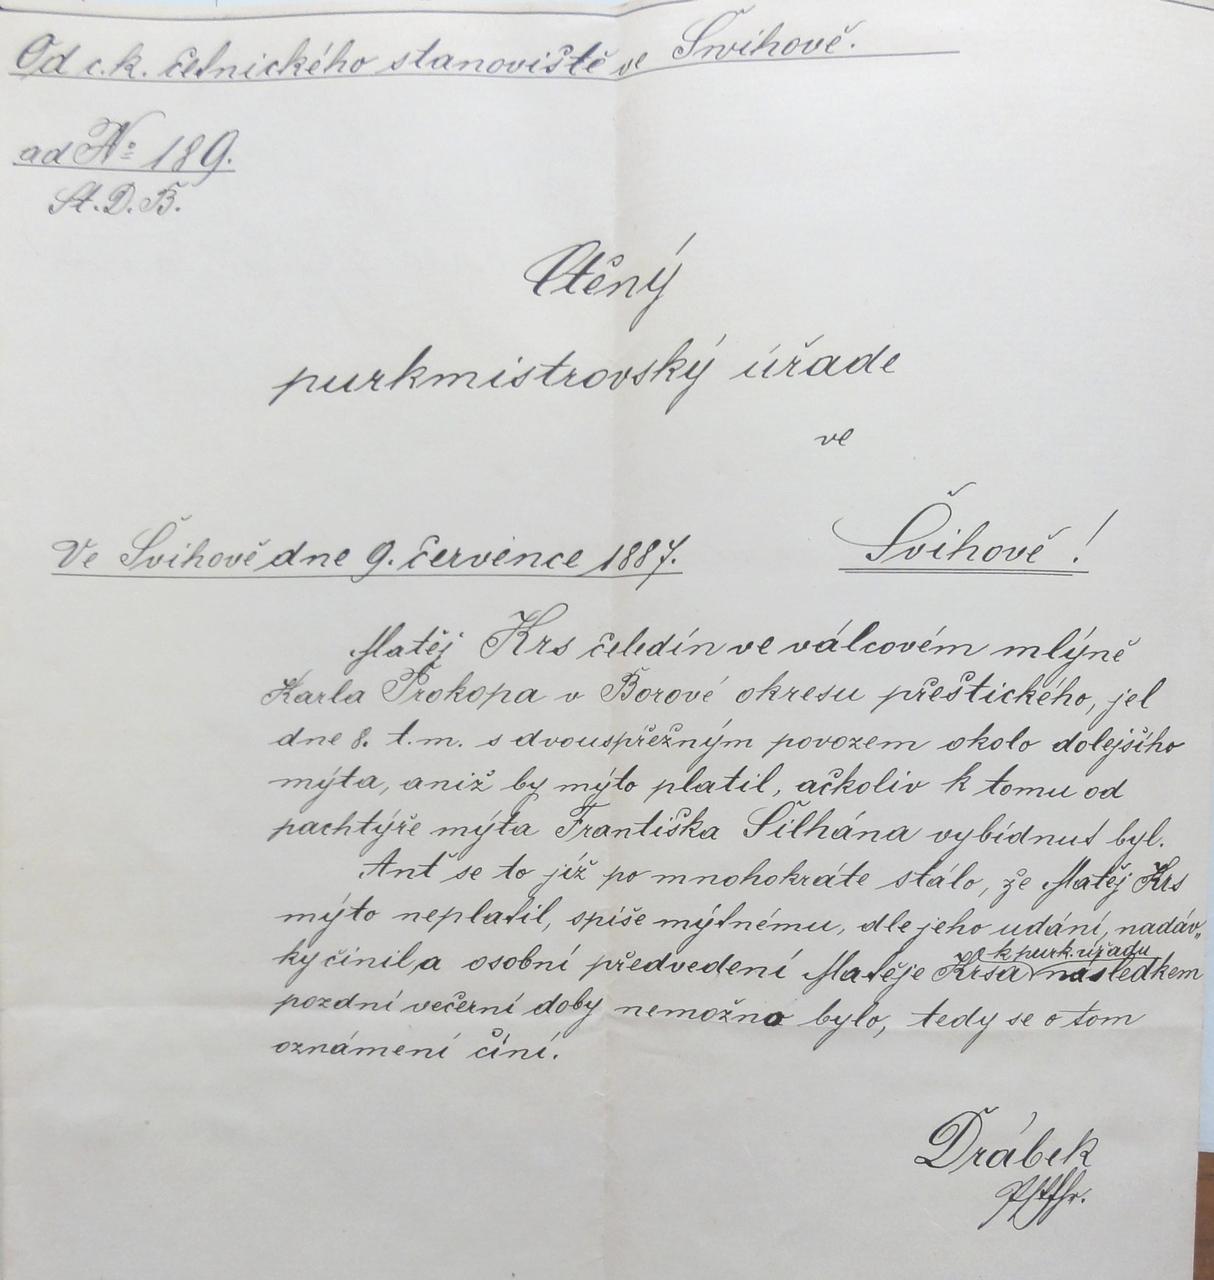 Od c.k. četnického stanoviště ve Švihově.
ad No 189.
St. D. B.
Ctěný
purkmistrovský úřade
ve
Švihově!
Ve Švihově dne 9. července 1887.
Matěj Krs čeledín ve válcovém mlýně
Karla Prokopa v Borové okresu přeštického, jel
dne 8. t.m. s dvouspřežným povozem okolo dolejšího
mýta, aniž by mýto platil, ačkoliv k tomu od
pachtýře mýta Františka Šilhána vybídnut byl.
Anť se to již po mnohokráte stálo, že Matěj Krs
mýto neplatil, spíše mýtnému, dle jeho udání, nadáv„
ky činil, a osobní předvedení Matěje Krsa k purk. úřadu následkem
pozdní večerní doby nemožno bylo, tedy se o tom
oznámení činí.
Drábek